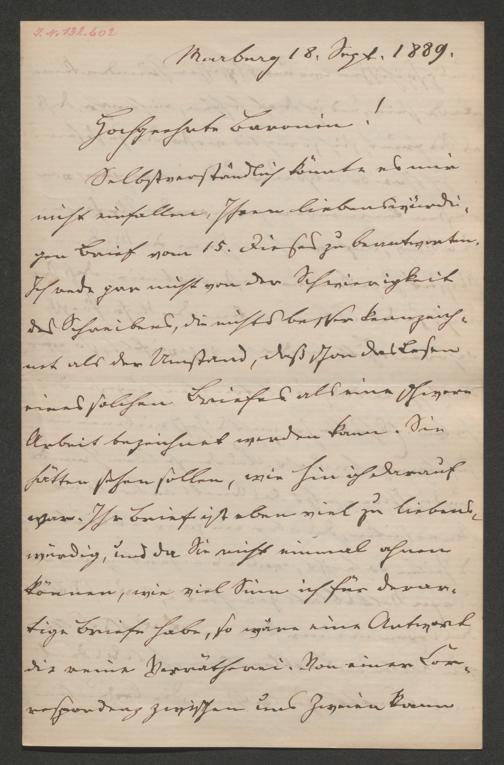 I.N. 132.602
Marburg 18. Sept. 1889.
Hochgeehrte Baronin!
Selbstverständlich könnte es mir
nicht einfallen, Ihren liebenswürdi-
gen Brief vom 15. dieses zu beantworten.
Ich rede gar nicht von der Schwierigkeit
des Schreibens, die nichts besser kennzeich-
net als der Umstand, daß schon das Lesen
eines solchen Briefes als eine schwere
Arbeit bezeichnet werden kann. Sie
hätten sehen sollen, wie hin ich darauf
war. Ihr Brief ist eben viel zu liebens-
würdig, und da Sie nicht einmal ahnen
können, wie viel Sinn ich für derar-
tige Briefe habe, so wäre eine Antwort
die reine Verrätherei. Von einer Cor-
respondenz zwischen uns Zweien kann